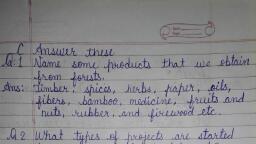 C Answer these
Q.1 Name some products that we obtain
from forests.
Ans: Timber, spices, herbs, paper, oils,
fibers, bamboo, medicine, fruits and
nuts, rubber, and firewood etc.
Q.2 What types of projects are started